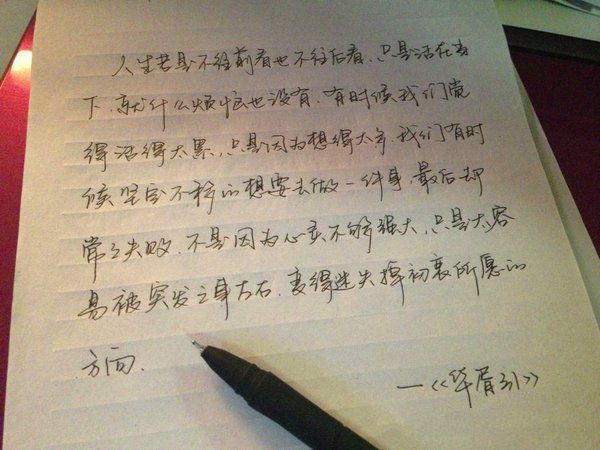 人生若是不往前看也不往后看,只是活在当
下,就什么烦恼也没有,有时候我们觉
得活得太累,只是因为想得太多,我们有时
候坚定不移的想要去做一件事,最后却
常常失败,不是因为心灵不够强大,只是太容
易被突发之事左右,变得迷失掉初衷所愿的
方向.
—《华胥引》